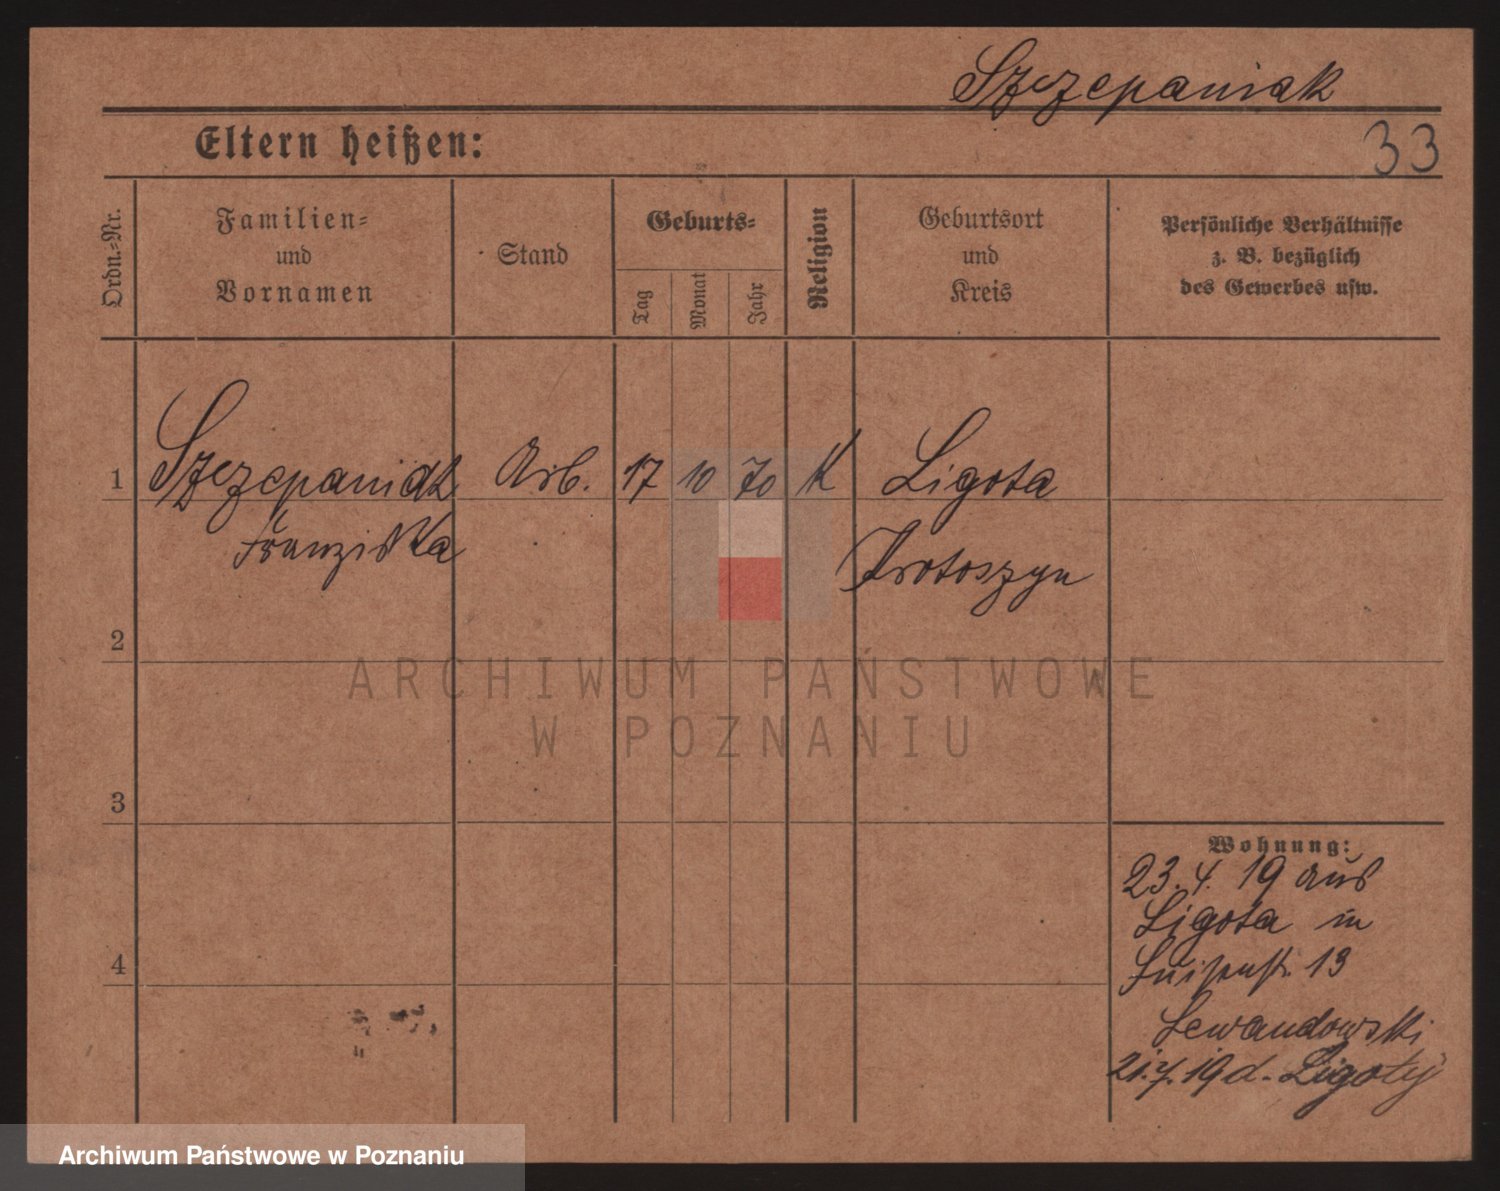 Szczepaniak
33
Eltern heißen:
Ordn.-Nr.
Familien-
und
Vornamen
Stand
Geburts-
Tag
Monat
Jahr
Religion
Geburtsort
und
Kreis
Persönliche Verhältnisse
z. B. bezüglich
des Gewerbes usw.
1 Szczepaniak Arb. 17 10 70 K Ligota
Franziska Krotoszyn
2
3
4
Wohnung:
23. 4. 19 aus
Ligota in
Luisenstr. 13
Lewandowski
21.7.19 d. Ligoty
ARCHIWUM PAŃSTWOWE
W POZNANIU
Archiwum Państwowe w Poznaniu